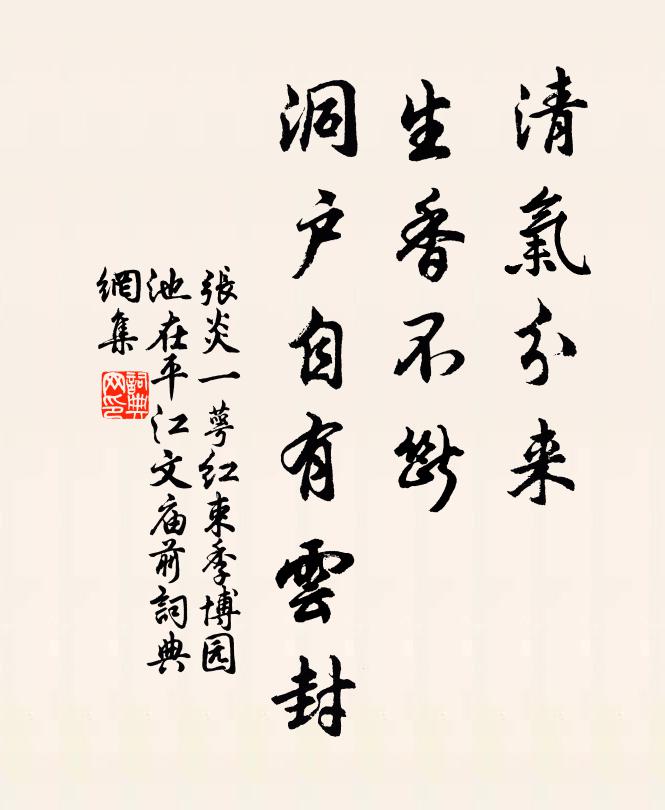 清氣分来
生香不斷
洞户自有雲封
張炎一萼紅束季博园
池在平江文庙前詞典
網集
詞典
网印